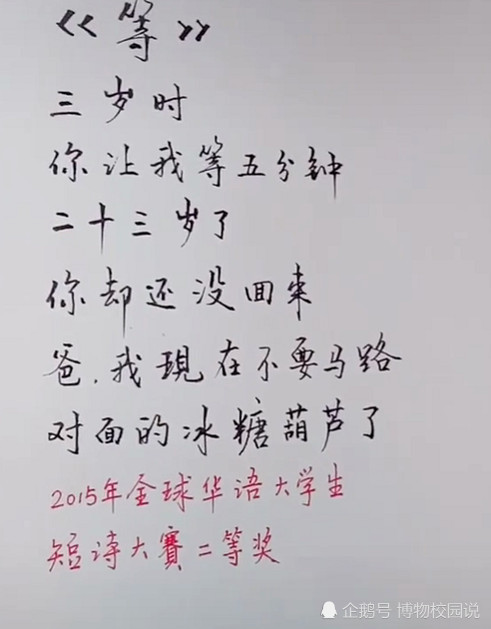 《等》
三岁时
你让我等五分钟
二十三岁了
你却还没回来
爸.我現在不要马路
对面的冰糖葫芦了
2015年全球华语大学生
短诗大賽二等奖
企鹅号 博物校园说